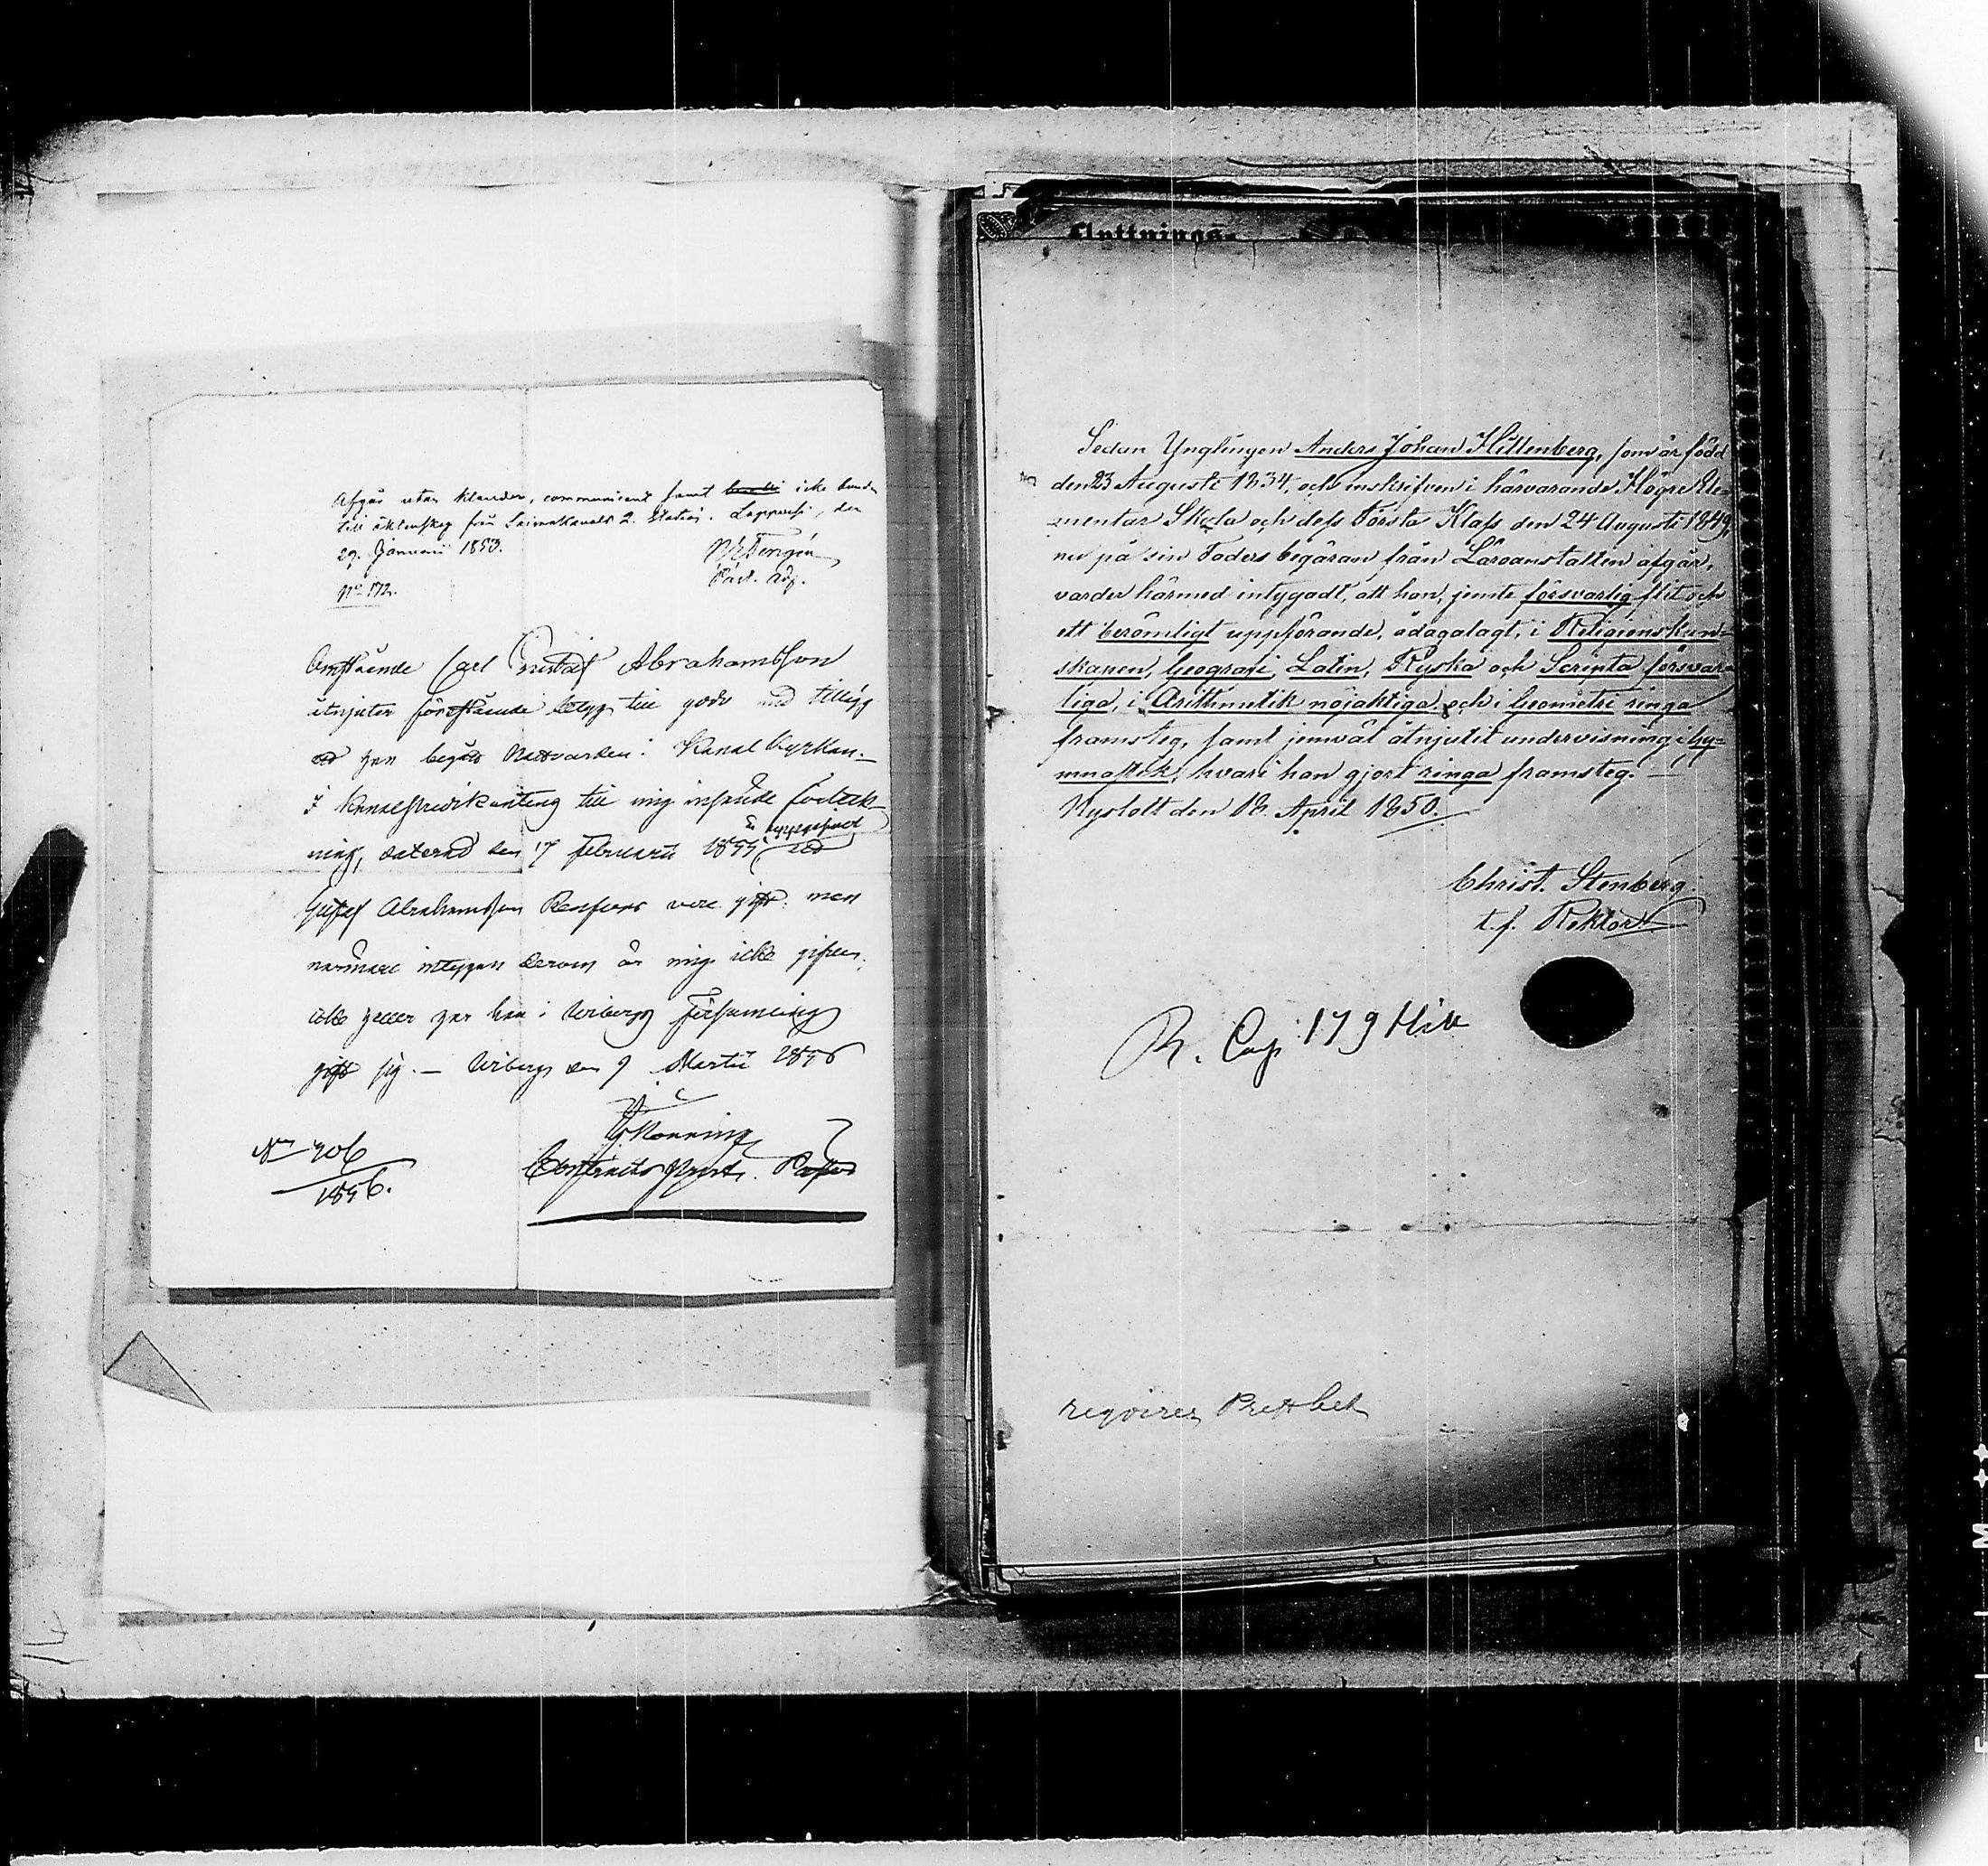 Afgår utan klander, communicent samt icke bunden
till äktenskap från Saimakanals 2. station. Lappvesi, den
29. Januarii 1853.
Past. adj.
No 172.
Omstående Carl Gustaf Abrahamsson
åtnjuter förestående betyg till godo med tillägg
begått Nattvarden i Kanal Kyrkan.
I Kanalpredikantens till mig insände förteck-
ning, daterad den 17 Februarii 1855 uppgifvet
Gustaf Abrahamsson vara gift: men
närmare intygan derom är mig icke gifven,
icke heller har han i Wiborgs Församling
gift sig. — Wiborg den 9 Martii 1856
No 406
1856.
Fluttnings-
Sedan Ynglingen Anders Johan Hittenberg, som är född
den 23 Augusti 1834, och inskrifven i härvarande Högre Ele-
mentar Skola och dess Första Klass den 24 Augusti 1849,
nu på sin Faders begäran från Läroanstalten afgår,
varder härmed intygadt, att han, jemte försvarlig flit och
ett berömligt uppförande, ådagalagt, i Religionskun-
skapen, Geografi, Latin, Ryska och Scripta försvar-
liga, i Arithmetik nöjaktiga och i Geometri ringa
framsteg, samt jemväl åtnjutit undervisning i Gy-
mnastik, hvari han gjort ringa framsteg. —
Nyslott den 18 April 1850.
Christ. Stenberg.
t.f. Rektor
179